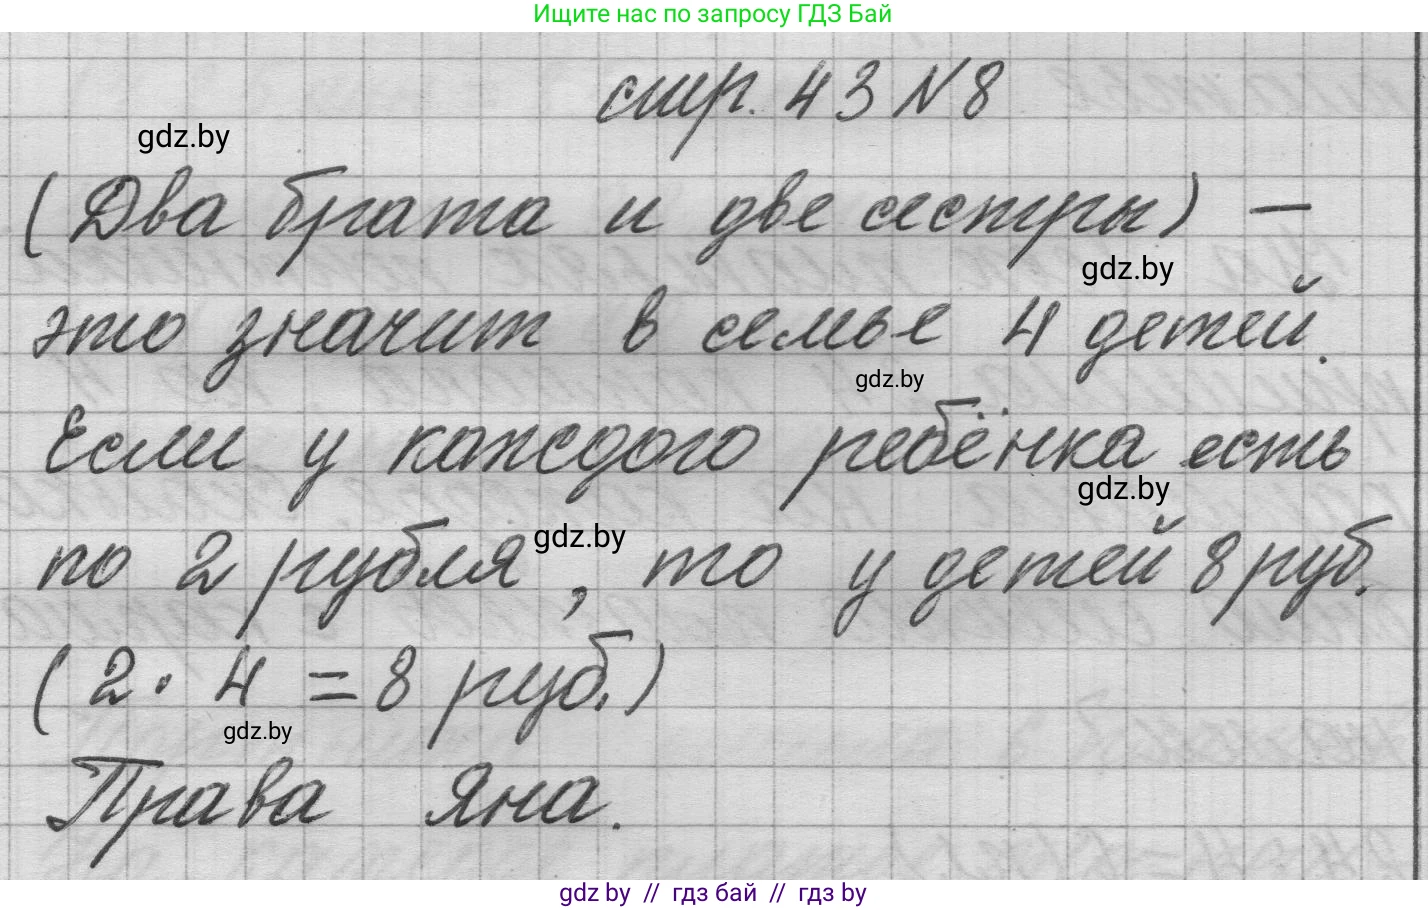 Ищите нас по запросу ГДЗ Бай
стр. 43 N 8
gdz.by
(Два брата и две сестры) —
gdz.by
это значит в семье 4 детей.
gdz.by
Если у каждого ребёнка есть
gdz.by
по 2 рубля, то у детей 8 руб.
gdz.by
(2 · 4 = 8 руб.)
gdz.by
Права Яна.
gdz by // гдз бай // гдз by